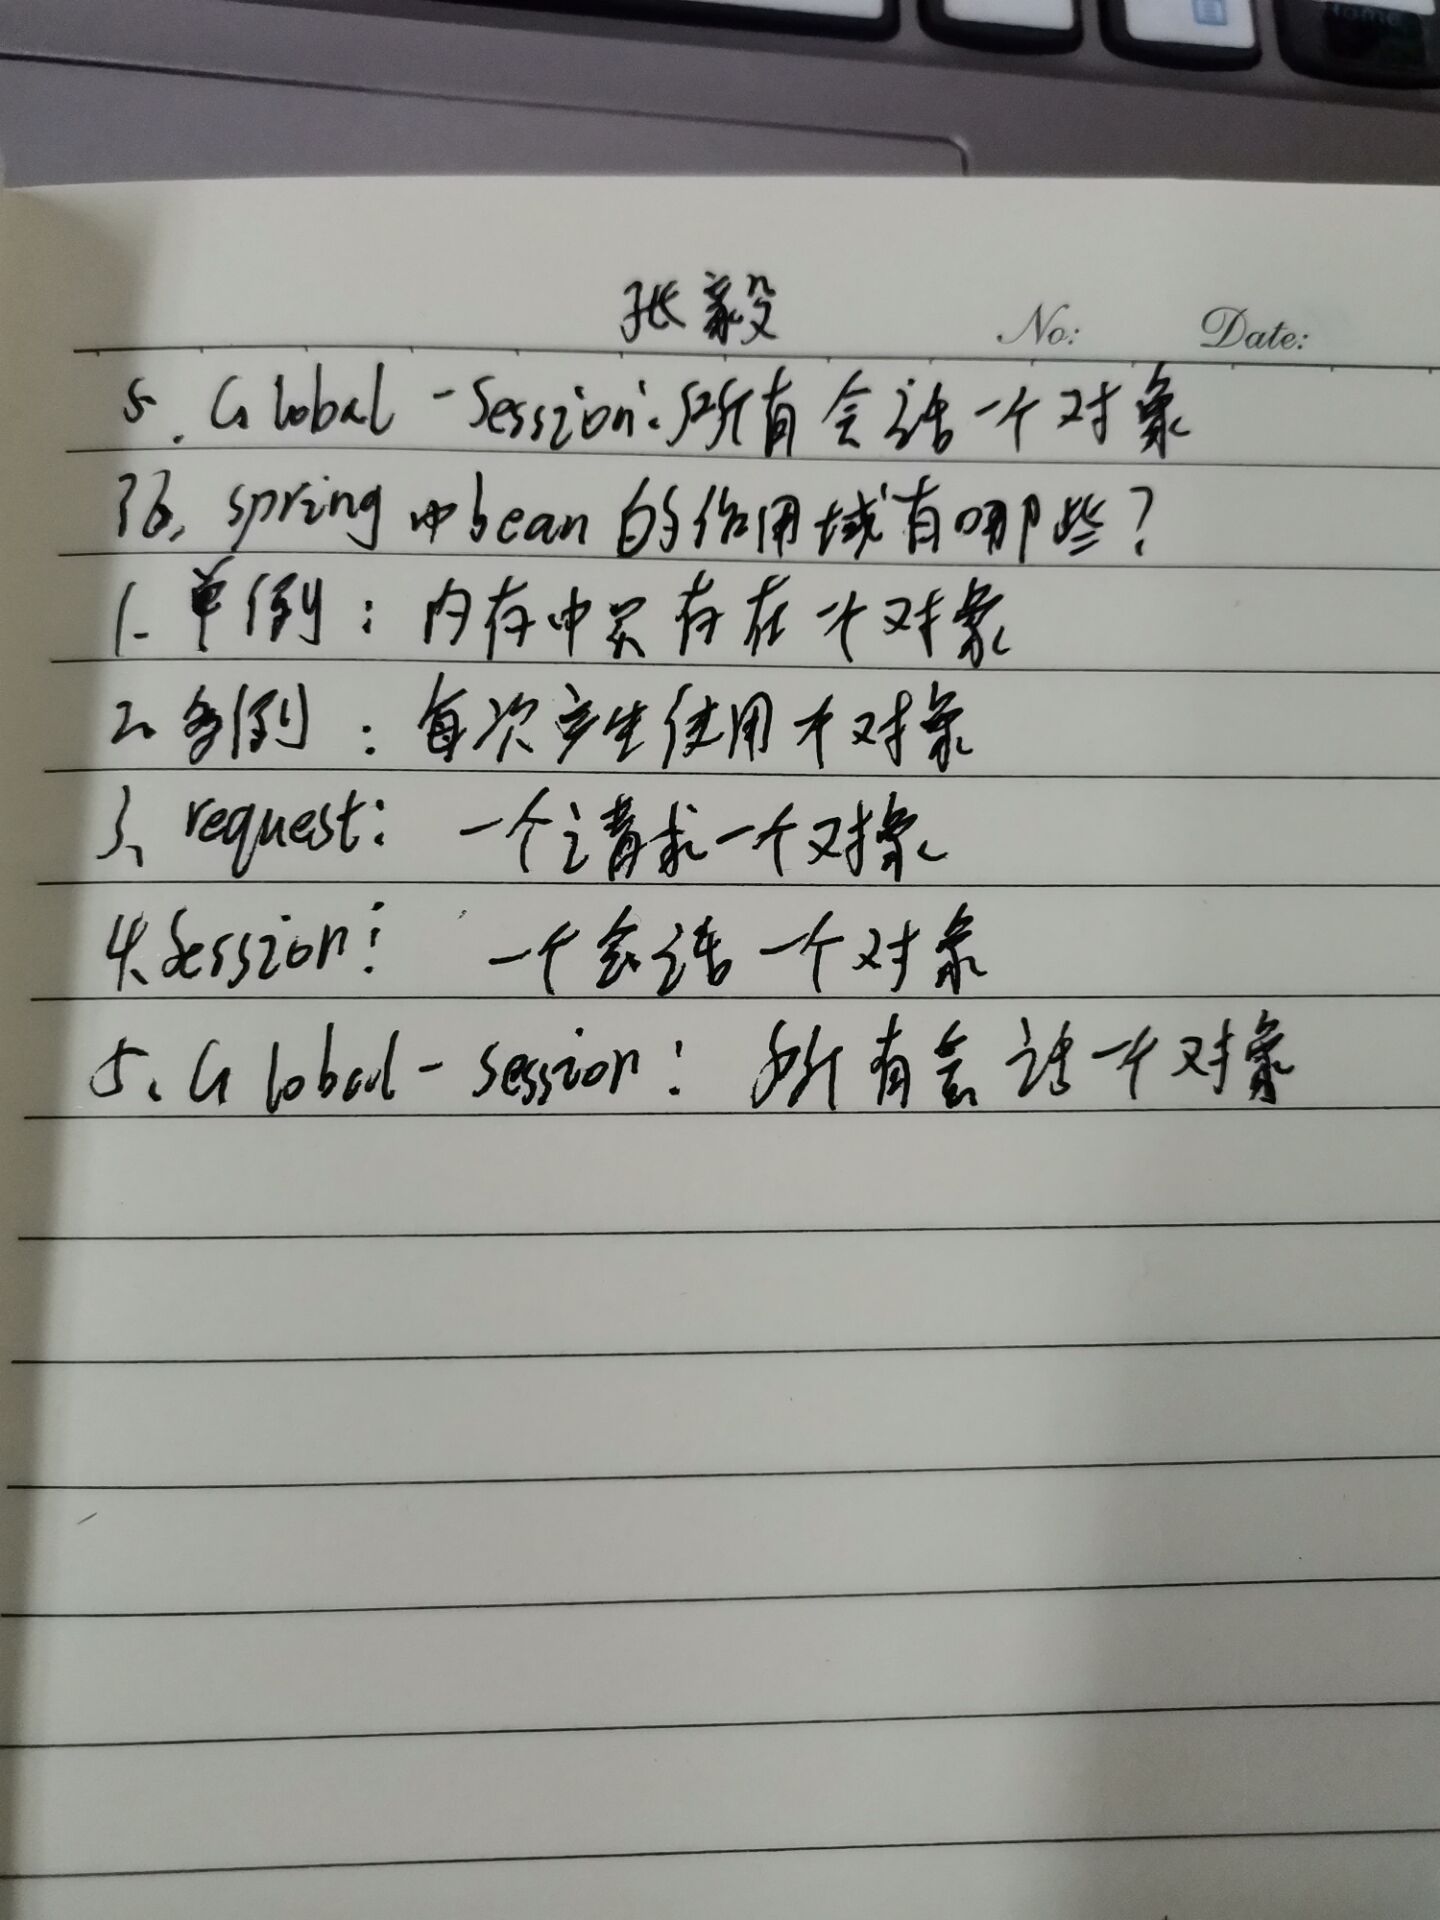 Home
张毅
No: Date:
5. Global-Session:所有会话一个对象
36、spring中bean的作用域有哪些?
1. 单例:内存中只存在一个对象
2. 多例:每次产生使用一个对象
3、request: 一个请求一个对象
4、Session: 一个会话一个对象
5、Global-session: 所有会话一个对象